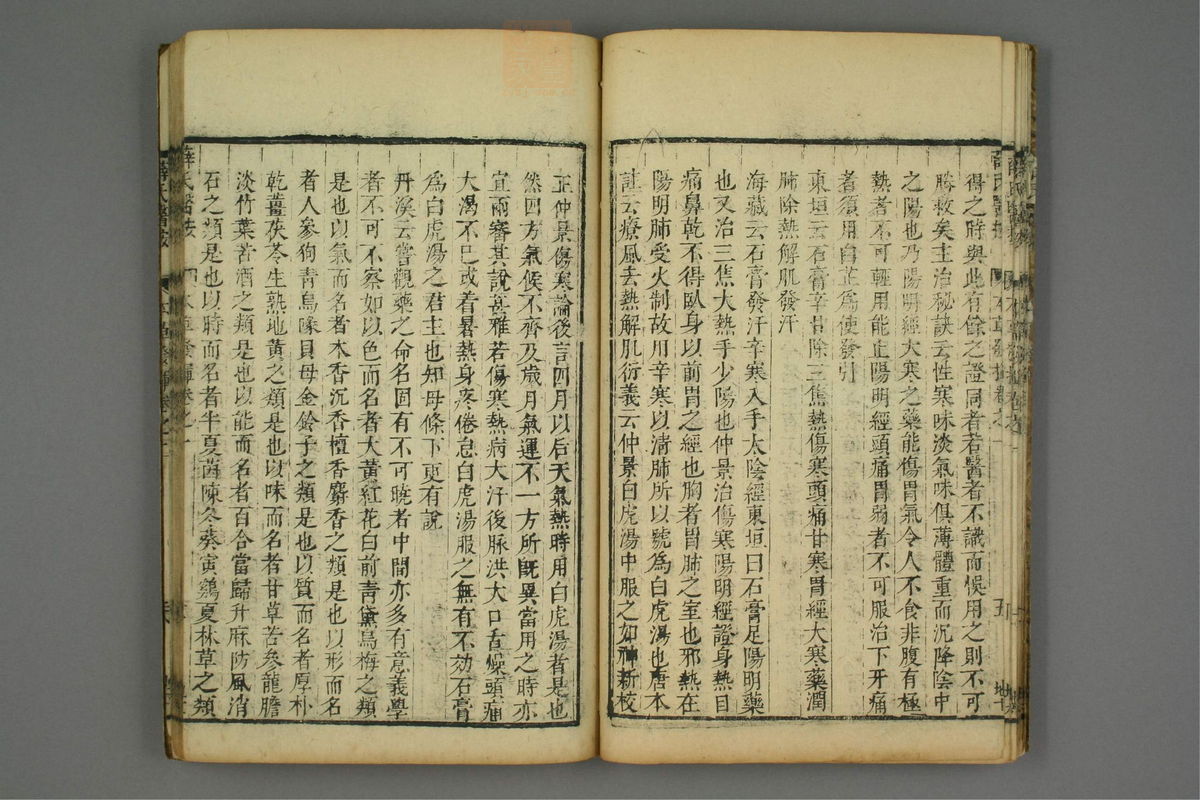 得之時與此有餘之證同者若醫者不識而候用之則不可
勝救矣主治秘訣云性寒味淡氣味俱薄體重而沉降陰中
之陽也乃陽明經大寒之藥能傷胃氣令人不食非腹有極
熱者不可輕用能止陽明經頭痛胃弱者不可服治下牙痛
者須用白芷為使發引
東垣云石膏辛甘除三焦熱傷寒頭痛甘寒胃經大寒藥潤
肺除熱解肌發汗
海藏云石膏發汗辛寒入手太陰經東垣曰石膏足陽明藥
也又治三焦大熱手少陽也仲景治傷寒陽明經證身熱目
痛鼻乾不得臥身以前胃之經也胸者胃肺之室也邪熱在
陽明肺受火制故用辛寒以清肺所以號為白虎湯也唐本
註云療風去熱解肌衍義云仲景白虎湯中服之如神新校
正仲景傷寒論後言四月以后天氣熱時用白虎湯者是也
然四方氣候不齊及歲月氣運不一方所既異當用之時亦
宜兩審其說甚雅若傷寒熱病大汗後脉洪大口舌燥頭痛
大渴不已或着暑熱身疼倦怠白虎湯服之無有不効石膏
為白虎湯之君主也知母條下更有說
丹溪云嘗觀藥之命名固有不可曉者中間亦多有意義學
者不可不察如以色而名者大黃紅花白前青黛烏梅之類
是也以氣而名者木香沉香檀香麝香之類是也以形而名
者人參狗青烏喙貝母金鈴子之類是也以質而名者厚朴
乾薑茯苓生熟地黃之類是也以味而名者甘草苦參龍膽
淡竹葉苦酒之類是也以能而名者百合當歸升麻防風消
石之類是也以時而名者半夏茵陳冬葵寅鷄夏林草之類
薛氏醫按 本草發揮卷之一